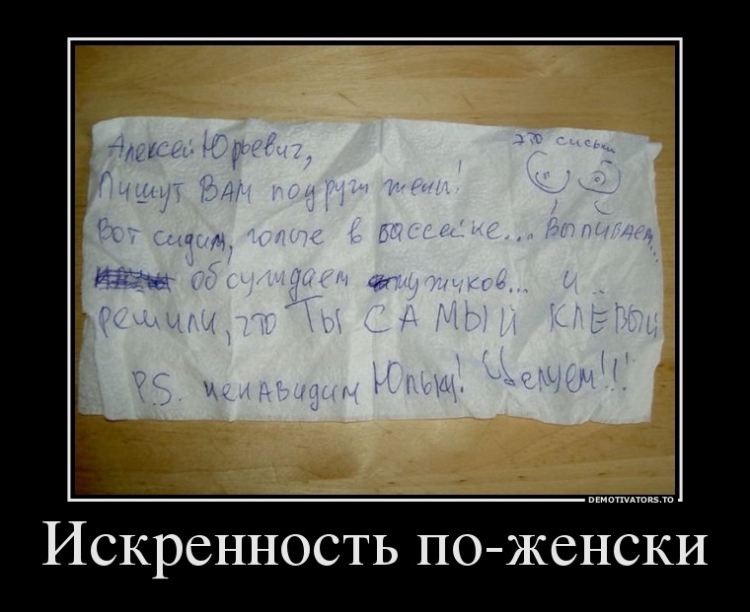 Алексей Юрьевич,
это сиськи
Пишут ВАМ подруги жены!
Вот сидим, голые в бассейне... Выпиваем...
обсуждаем мужчиков... и..
решили, что Ты САМЫЙ КЛЕВЫЙ
P.S. ненавидим Юльку! Целуем!!!
DEMOTIVATORS.TO
Искренность по-женски